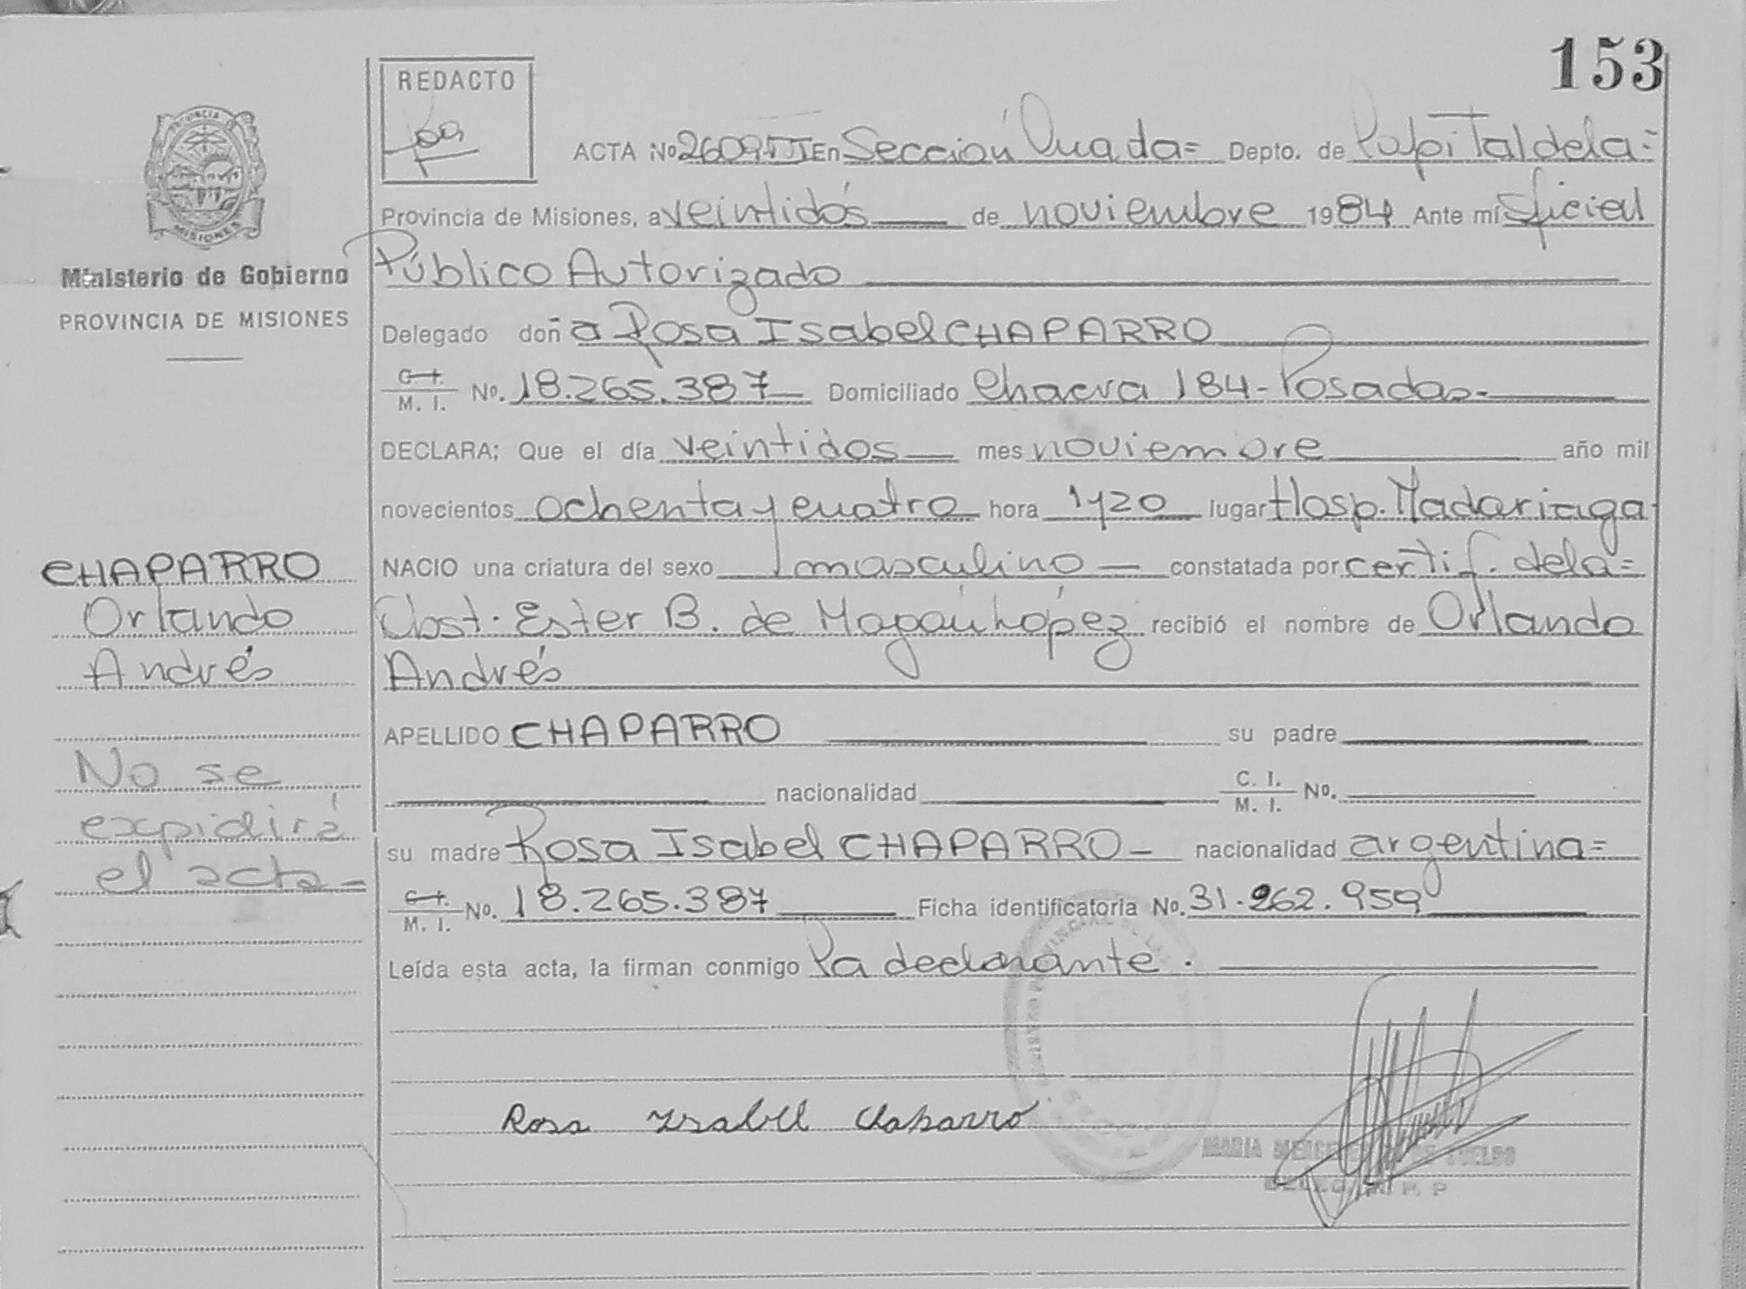 153
REDACTO
ACTA No 2609 En Sección Depto. de Capital de la =
Provincia de Misiones, a veintidós de noviembre 1984 Ante mí Oficial
Público Autorizado
Delegado doña Rosa Isabel CHAPARRO
C. I. / M. I. No. 18.265.387 Domiciliado Chacra 184 - Posadas -
DECLARA; Que el día veintidos mes noviembre año mil
novecientos ochenta y cuatro hora 1y20 lugar Hosp. Madariaga
NACIO una criatura del sexo masculino constatada por certif. de la =
Obst. Ester B. de López recibió el nombre de Orlando
Andrés
APELLIDO CHAPARRO su padre
nacionalidad C. I. / M. I. No.
su madre Rosa Isabel CHAPARRO - nacionalidad argentina =
C. I. / M. I. No. 18.265.387 Ficha identificatoria No. 31.262.959
Leída esta acta, la firman conmigo la declarante.
Rosa Ysabel Chaparro
MARIA
PROVINCIA DE
MISIONES
Ministerio de Gobierno
PROVINCIA DE MISIONES
CHAPARRO
Orlando
Andrés
No se
expidirá
el acta -